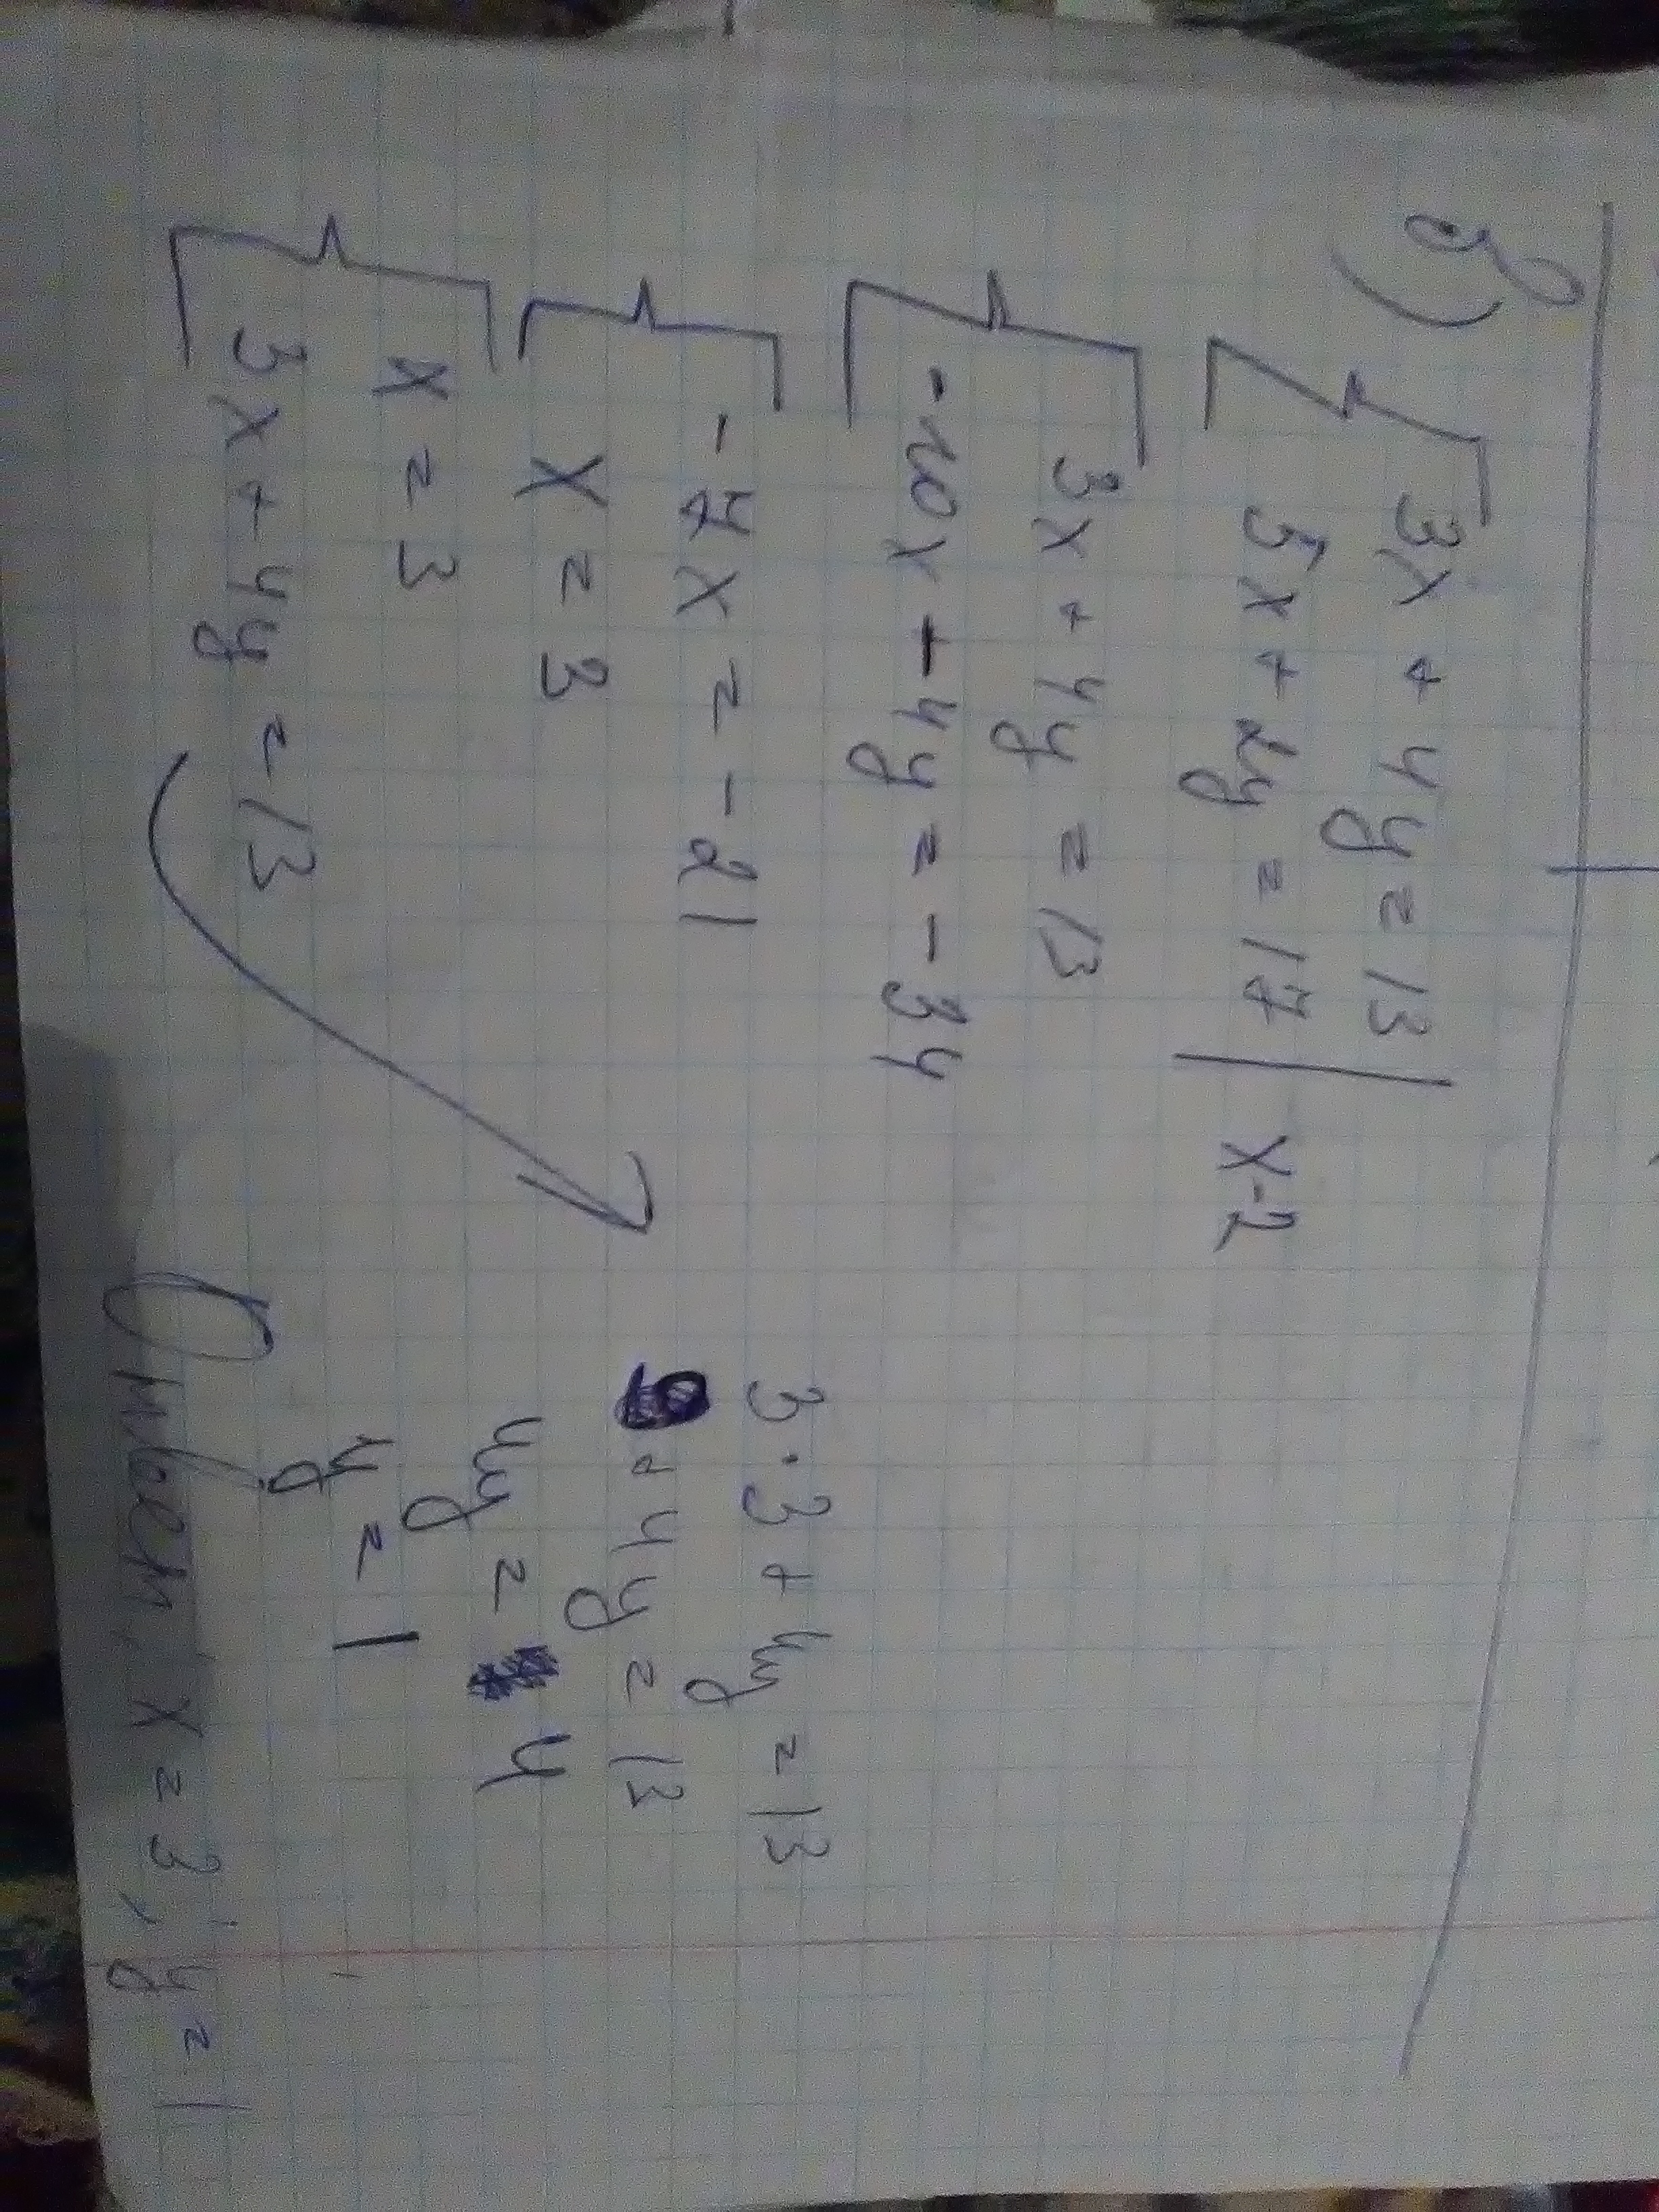 б)
3x + 4y = 13
5x + 2y = 17 | x-2
3x + 4y = 13
-10x - 4y = -34
-7x = -21
x = 3
x = 3
3x + 4y = 13
3·3 + 4y = 13
9 + 4y = 13
4y = 4
y = 1
Ответ: x = 3; y = 1